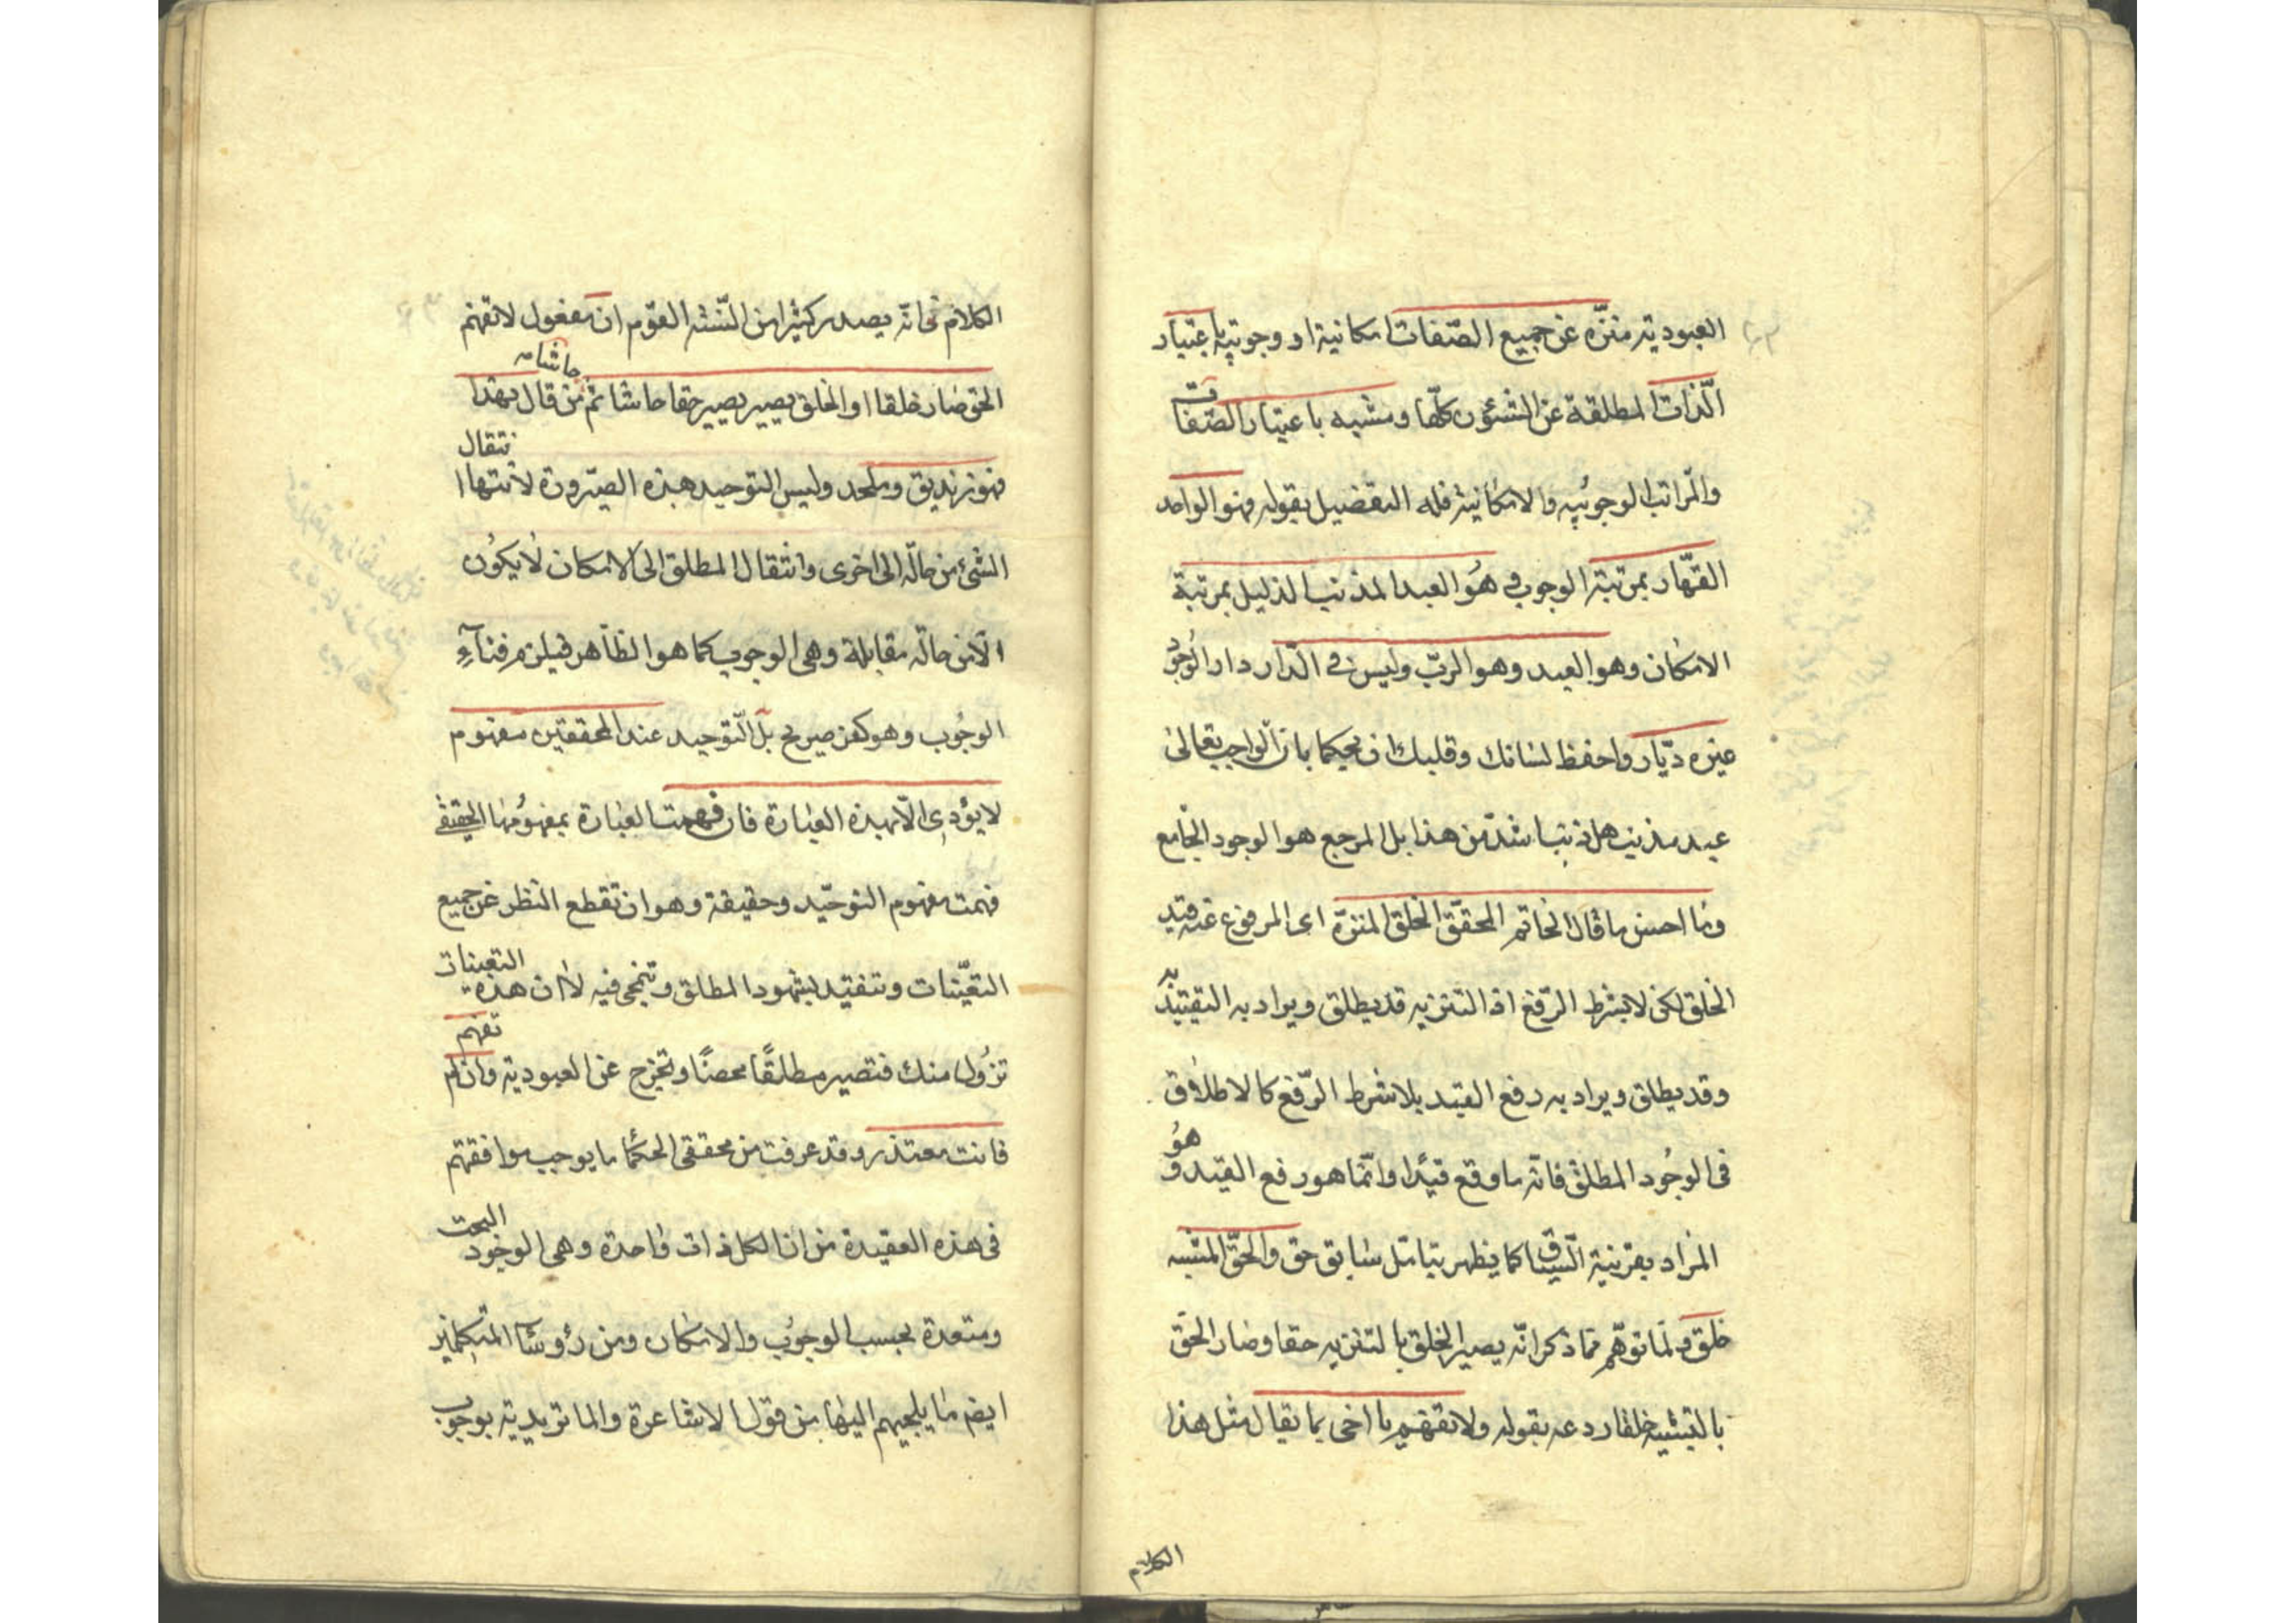 العبودية منزّه عن جميع الصّفات امكانية او وجوبية باعتبار
الّذات المطلقة عن الشئون كلّها ومشبه باعتبار الصّفات
والمراتب الوجوبيه والامكانية فله التفضيل بقوله فهو الواحد
القهّار بمرتبة الوجوب في هو العبد المذنب الذليل بمرتبة
الامكان وهو العبد وهو الربّ وليس في الدّار دار الوجود
غيره ديّار واحفظ لسانك وقلبك ان يحكما بان الواجب تعالى
عبد مذنب هل ذنب اشدّ من هذا بل المرجع هو الوجود الجامع
وما احسن ما قال الخاتم المحقّق الخلق المنزّه اى المرفوع عنه قيد
الخلق لكن لا بشرط الرّفع اذ التنزيه قد يطلق ويراد به التقييد
وقد يطلق ويراد به رفع القيد بلا شرط الرّفع كالاطلاق
فى الوجود المطلق فانّه ما وقع قيدًا وانّما هو رفع القيد وهو
المراد بقرينة السّياق كما يظهر بتامّل سابق حق والحقّ المشبه
خلق ولمّا توهّم ممّا ذكر انّه يصير الخلق بالتنزيه حقا وصار الحق
بالتشبيه خلقا ردعه بقوله ولا تفهم يا اخى بما يقال مثل هذا
الكلام
الكلام فانّه يصدر كثيرا من السنة القوم ان مفعول لا تفهم
الحق صار خلقا او الخلق يصير يصير حقا حاشا ثم حاشاه من قال بهذا
فهو زنديق وملحد وليس التوحيد هذه الصيرورة لانّها انتقال
الشئ من حالّه الى اخرى وانتقال المطلق الى الامكان لا يكون
الّا من حالّه مقابلة وهى الوجوب كما هو الظاهر فيلزم فناء
الوجوب وهو كفر صريح بل التوحيد عند المحققين مفهوم
لا يؤدى الّا بهذه العبارة فان فهمت العبارة بمفهومها الحقيقى
فهمت مفهوم التوحيد وحقيقة وهو ان تقطع النظر عن جميع
التعيّنات وتتقيد بشهود المطلق وتنمحى فيه لا ان هذه التعينات
تزول منك فتصير مطلقًا محضًا وتخرج عن العبودية وان لم تفهم
فانت معتذر وقد عرفت من محققى الحكما ما يوجب موافقتهم
فى هذه العقيدة من ان الكل ذات واحدة وهى الوجود البحت
ومتعددة بحسب الوجوب والامكان ومن رؤسآء المتكلمين
ايضه ما يلجيهم اليها من قول الاشاعرة والماتريدية بوجوب